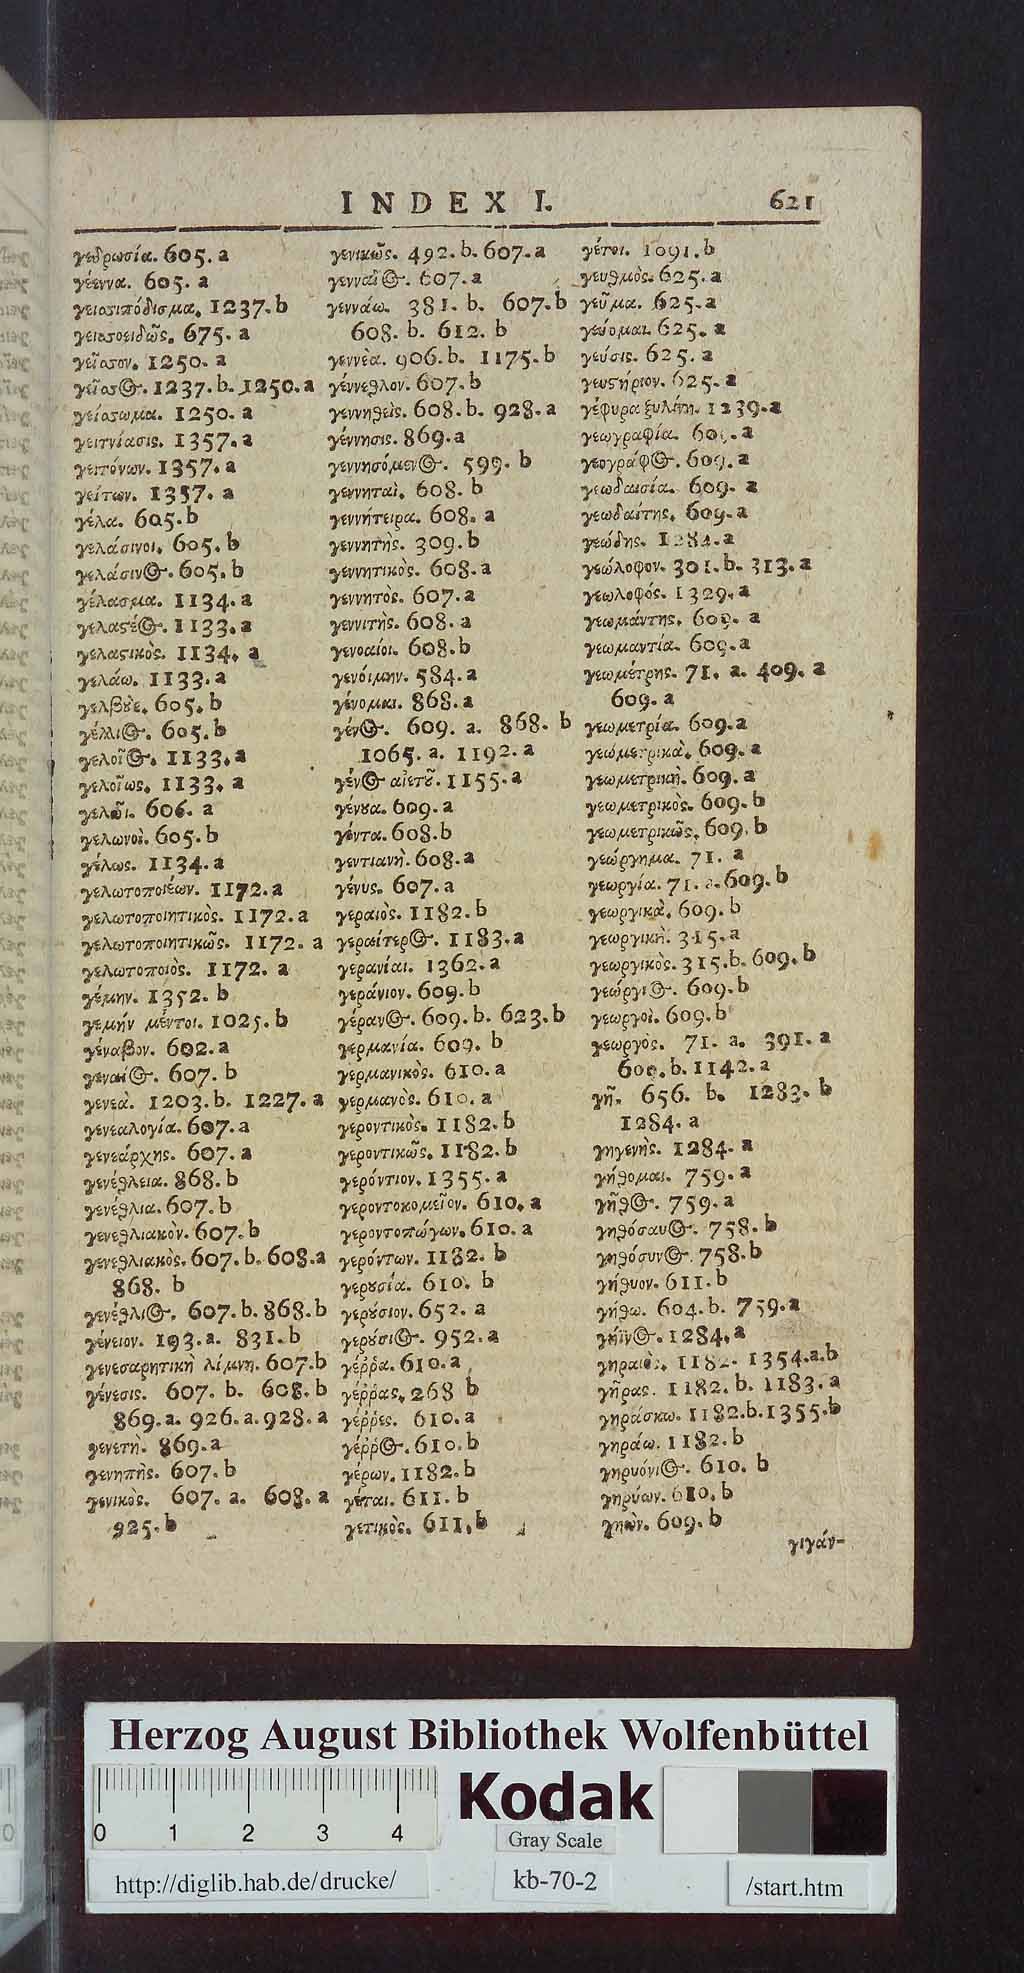 INDEX I. 621
γεδρωσία. 605. a
γέεννα. 605. a
γειοσιπόδισμα. 1237. b
γεισοειδῶς. 675. a
γεῖσον. 1250. a
γεῖσος. 1237. b. 1250. a
γείσωμα. 1250. a
γειτνίασις. 1357. a
γειτόνων. 1357. a
γείτων. 1357. a
γέλα. 605. b
γελάσινοι. 605. b
γελάσινος. 605. b
γέλασμα. 1134. a
γελαστέος. 1133. a
γελαστικὸς. 1134. a
γελάω. 1133. a
γελβȣὲ. 605. b
γέλλιος. 605. b
γελοῖος. 1133. a
γελοίως. 1133. a
γελῶι. 606. a
γελωνοὶ. 605. b
γέλως. 1134. a
γελωτοποιέων. 1172. a
γελωτοποιητικὸς. 1172. a
γελωτοποιητικῶς. 1172. a
γελωτοποιὸς. 1172. a
γέμην. 1352. b
γεμήν μέντοι. 1025. b
γέναβον. 602. a
γεναῖος. 607. b
γενεὰ. 1203. b. 1227. a
γενεαλογία. 607. a
γενεάρχης. 607. a
γενέθλεια. 868. b
γενέθλια. 607. b
γενεθλιακὸν. 607. b
γενεθλιακὸς. 607. b. 608. a
868. b
γενέθλιος. 607. b. 868. b
γένειον. 193. a. 831. b
γενεσαρητικὴ λίμνη. 607. b
γένεσις. 607. b. 608. b
869. a. 926. a. 928. a
γενετὴ. 869. a
γενηπὴς. 607. b
γενικὸς. 607. a. 608. a
925. b
γενικῶς. 492. b. 607. a
γενναῖος. 607. a
γεννάω. 381. b. 607. b
608. b. 612. b
γεννὲα. 906. b. 1175. b
γέννεθλον. 607. b
γεννηθεὶς. 608. b. 928. a
γέννησις. 869. a
γεννησόμενος. 599. b
γεννηταὶ. 608. b
γεννήτειρα. 608. a
γεννητὴς. 309. b
γεννητικὸς. 608. a
γεννητὸς. 607. a
γεννιτὴς. 608. a
γενοαίοι. 608. b
γενόιμην. 584. a
γένομαι. 868. a
γένος. 609. a. 868. b
1065. a. 1192. a
γένος αἰετȣ͂. 1155. a
γένȣα. 609. a
γέντα. 608. b
γεντιανὴ. 608. a
γένυς. 607. a
γεραιὸς. 1182. b
γεραίτερος. 1183. a
γερανίαι. 1362. a
γεράνιον. 609. b
γέρανος. 609. b. 623. b
γερμανία. 609. b
γερμανικὸς. 610. a
γερμανὸς. 610. a
γεροντικὸς. 1182. b
γεροντικῶς. 1182. b
γερόντιον. 1355. a
γεροντοκομεῖον. 610. a
γεροντοπώγων. 610. a
γερόντων. 1182. b
γερȣσία. 610. b
γερȣ́σιον. 652. a
γερȣ́σιος. 952. a
γέῤῥα. 610. a
γέῤῥας. 268 b
γέῤῥες. 610. a
γέῤῥος. 610. b
γέρων. 1182. b
γέται. 611. b
γετικὸς. 611. b
γέτοι. 1091. b
γευθμὸς. 625. a
γεῦμα. 625. a
γεύομαι. 625. a
γεύσις. 625. a
γευστήριον. 625. a
γέφυρα ξυλίνη. 1239. a
γεωγραφία. 609. a
γεογράφος. 609. a
γεωδαισία. 609. a
γεωδαίτης. 609. a
γεώδης. 1284. a
γεώλοφον. 301. b. 313. a
γεωλοφός. 1329. a
γεωμάντης. 609. a
γεωμαντία. 609. a
γεωμέτρης. 71. a. 409. a
609. a
γεωμετρία. 609. a
γεώμετρικὰ. 609. a
γεωμετρικὴ. 609. a
γεωμετρικὸς. 609. b
γεωμετρικῶς. 609. b
γεώργημα. 71. a
γεωργία. 71. a. 609. b
γεωργικὰ. 609. b
γεωργικὴ. 315. a
γεωργικὸς. 315. b. 609. b
γεώργιος. 609. b
γεωργοὶ. 609. b
γεωργὸς. 71. a. 391. a
609. b. 1142. a
γῆ. 656. b. 1283. b
1284. a
γηγενὴς. 1284. a
γήθομαι. 759. a
γῆθος. 759. a
γηθόσαυος. 758. b
γηθόσυνος. 758. b
γήθυον. 611. b
γήθω. 604. b. 759. a
γήϊνος. 1284. a
γηραιὸς. 1182. 1354. a. b
γῆρας. 1182. b. 1183. a
γηράσκω. 1182. b. 1355. b
γηράω. 1182. b
γηρυόνιος. 610. b
γηρύων. 610. b
γηών. 609. b
γιγάν-
Herzog August Bibliothek Wolfenbüttel
Kodak
0 1 2 3 4
Gray Scale
http://diglib.hab.de/drucke/ kb-70-2 /start.htm